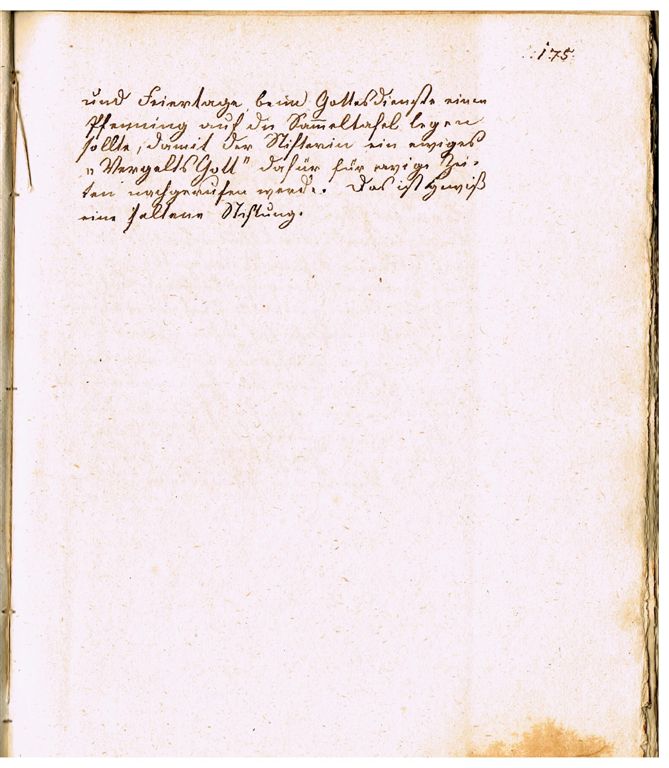 175.
und Feiertage beim Gottesdienste einen
Pfenning auf die Sam̅eltafel legen
sollte, damit der Stifterin ein ewiges
„Vergelts Gott" dafür für ewige Zei-
ten nachgerufen werde. Das ist gewiß
eine seltene Stiftung.